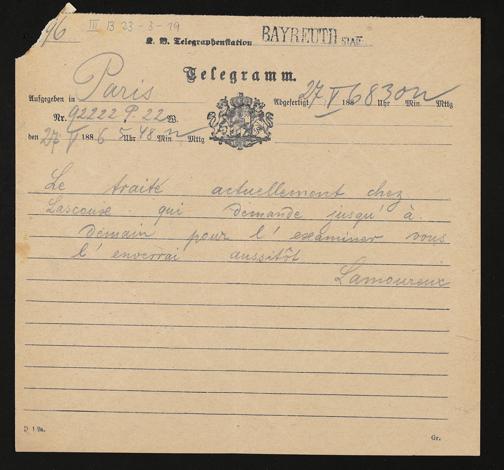 III B 23-3-19
K. B. Telegraphenstation BAYREUTH
Telegramm.
Aufgegeben in Paris
Abgefertigt 27 V 1886 8 Uhr 30 Min. n Mttg
Nr. 92222 P. 22 W.
den 27 V 1886 5 Uhr 48 Min. n Mttg
Le traité actuellement chez
Lascoux qui demande jusqu'à
demain pour l'examiner vous
l'enverrai aussitôt
Lamoureux
D 1 Gr.